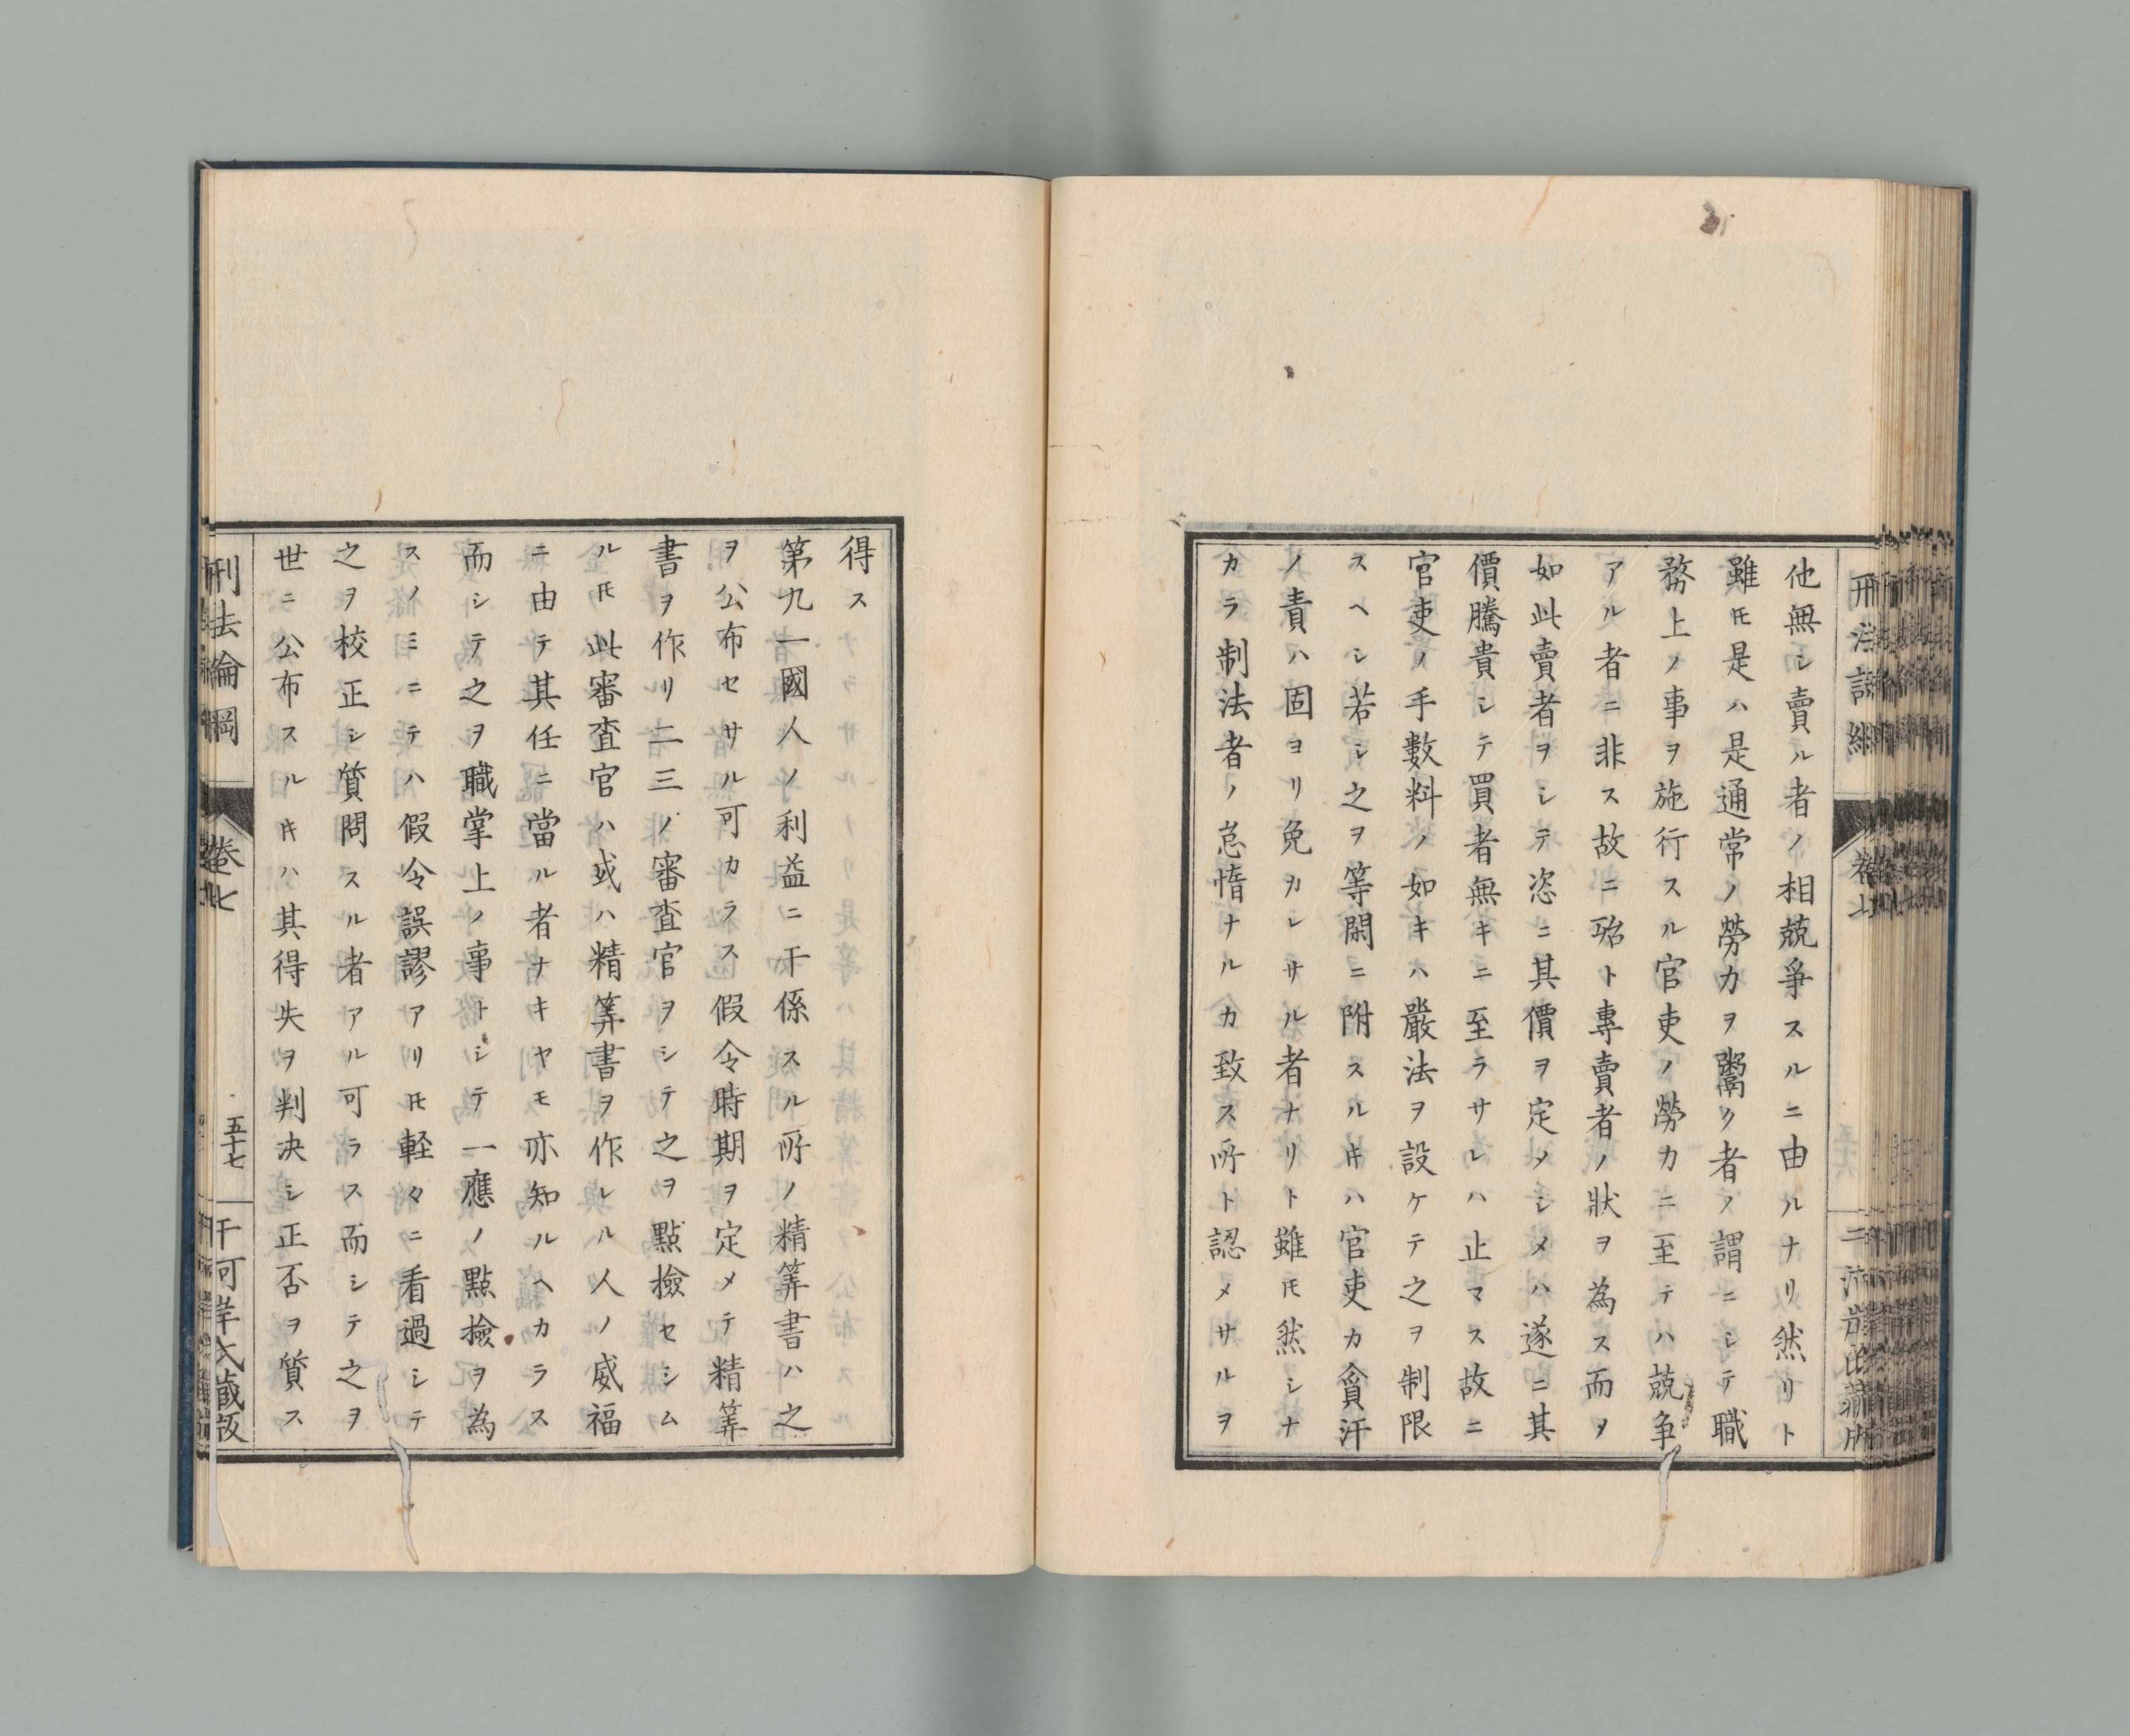 他無シ賣ル者ノ相競爭スルニ由ルナリ然リト
雖𪜈是ハ是通常ノ勞力ヲ鬻ク者ノ謂ニシテ職
務上ノ事ヲ施行スル官吏ノ勞力ニ至テハ競争
アル者ニ非ス故ニ殆ト專賣者ノ狀ヲ為ス而メ
如此賣者ヲシテ恣ニ其價ヲ定メシメハ遂ニ其
價騰貴シテ買者無キニ至ラサレハ止マス故ニ
官吏ノ手數料ノ如キハ嚴法ヲ設ケテ之ヲ制限
スヘシ若シ之ヲ等閑ニ附スルキハ官吏カ貪汗
ノ責ハ固ヨリ免カレサル者ナリト雖𪜈然シナ
カラ制法者ノ怠惰ナルカ致ス所ト認メサルヲ
得ス
第九一國人ノ利益ニ干係スル所ノ精筭書ハ之
ヲ公布セサル可カラス假令時期ヲ定メテ精筭
書ヲ作リ二三ノ審査官ヲシテ之ヲ點撿セシム
ル𪜈此審査官ハ或ハ精筭書ヲ作レル人ノ威福
ニ由テ其任ニ當ル者ナキヤモ亦知ルヘカラス
而シテ之ヲ職掌上ノ事トシテ一應ノ點撿ヲ為
スノミニテハ假令誤謬アリ𪜈軽々ニ看過シテ
之ヲ校正シ質問スル者アル可ラス而シテ之ヲ
世ニ公布スルキハ其得失ヲ判决シ正否ヲ質ス
刑法論綱
卷七
五十七
千河岸氏蔵版